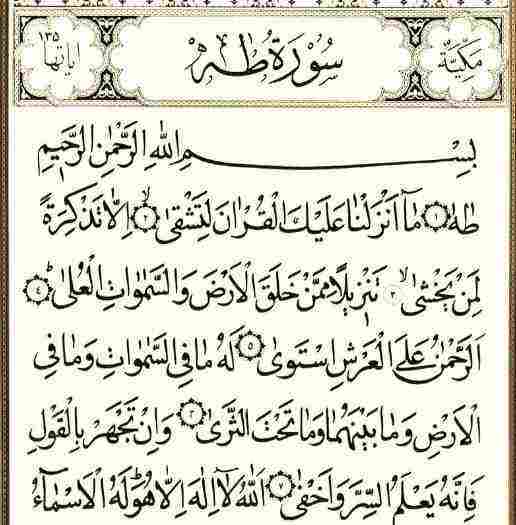 مَكِّيَّةٌ سُورَةُ طٰهٰ اٰيَاتُهَا ١٣٥
بِسْمِ اللّٰهِ الرَّحْمٰنِ الرَّحٖيمِ
طٰهٰ ﴿١﴾ مَٓا اَنْزَلْنَا عَلَيْكَ الْقُرْاٰنَ لِتَشْقٰىۙ ﴿٢﴾ اِلَّا تَذْكِرَةً
لِمَنْ يَخْشٰىۙ ﴿٣﴾ تَنْزٖيلًا مِمَّنْ خَلَقَ الْاَرْضَ وَالسَّمٰوَاتِ الْعُلٰىؕ ﴿٤﴾
اَلرَّحْمٰنُ عَلَى الْعَرْشِ اسْتَوٰى ﴿٥﴾ لَهُ مَا فِي السَّمٰوَاتِ وَمَا فِي
الْاَرْضِ وَمَا بَيْنَهُمَا وَمَا تَحْتَ الثَّرٰى ﴿٦﴾ وَاِنْ تَجْهَرْ بِالْقَوْلِ
فَاِنَّهُ يَعْلَمُ السِّرَّ وَاَخْفٰى ﴿٧﴾ اَللّٰهُ لَٓا اِلٰهَ اِلَّا هُوَؕ لَهُ الْاَسْمَٓاءُ